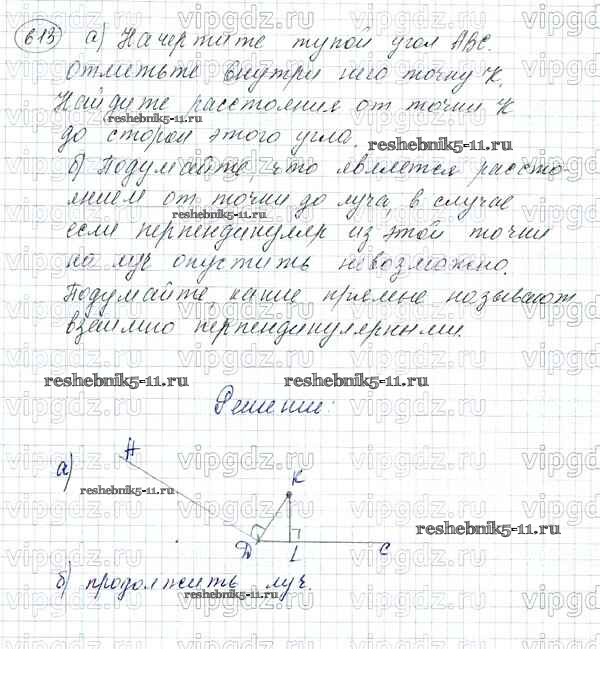 613 а) Начертите тупой угол АВС.
отметьте внутри него точку К.
Найдите расстояния от точки К
до сторон этого угла.
б) Подумайте, что является рассто-
янием от точки до луча, в случае
если перпендикуляр из этой точки
на луч опустить невозможно.
Подумайте, какие прямые называют
взаимно перпендикулярными.
reshebnik5-11.ru
reshebnik5-11.ru
reshebnik5-11.ru
reshebnik5-11.ru
reshebnik5-11.ru
Решение:
а)
А
К
reshebnik5-11.ru
reshebnik5-11.ru
Д
L
С
б) продолжить луч.
reshebnik5-11.ru
reshebnik5-11.ru
vipgdz.ru